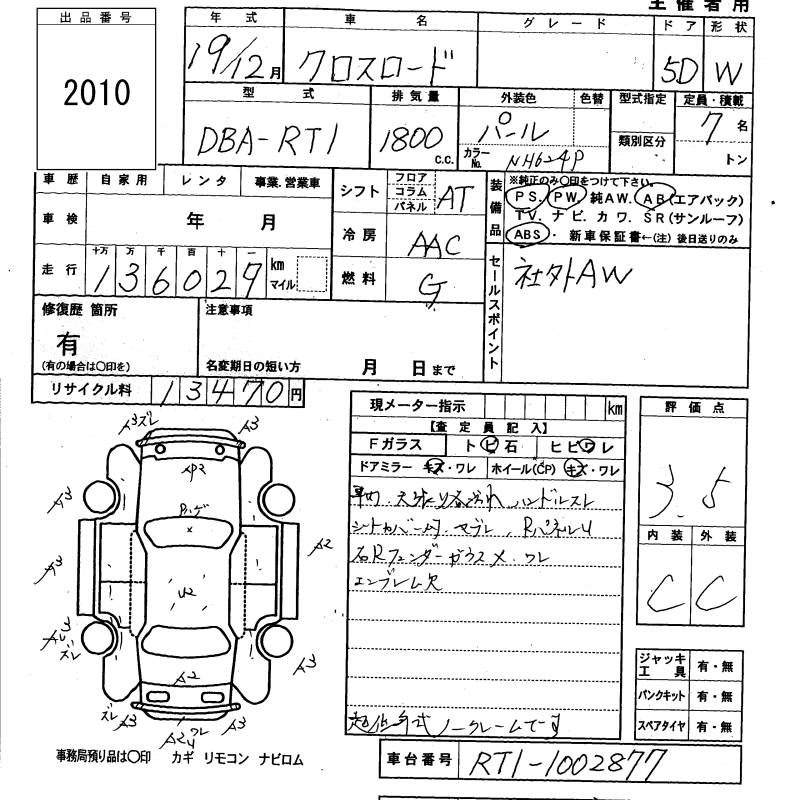 主催者用
出品番号
2010
年式 車名 グレード ドア 形状
19/12月 クロスロード 5D W
型式 排気量 外装色 色替 型式指定 定員・積載
DBA-RT1 1800 c.c. パール 類別区分 7名
カラーNo. NH624P トン
車歴 自家用 レンタ 事業.営業車
シフト フロア コラム パネル AT
装備品 ※純正のみ○印をつけて下さい。
PS. PW. 純AW. AB(エアバック)
TV. ナビ. カワ. SR(サンルーフ)
ABS・ 新車保証書←(注) 後日送りのみ
車検 年 月
冷房 AAC
走行 十万 万 千 百 十 一
136027 km マイル
燃料 G
セールスポイント 社外AW
修復歴 箇所
有
(有の場合は○印を)
注意事項
名変期日の短い方 月 日まで
リサイクル料 13470円
現メーター指示 km
【査定員記入】
Fガラス トビ石 ヒビワレ
ドアミラー キズ・ワレ ホイール(CP) キズ・ワレ
ハンドルスレ
シートカバー
右Rフェンダーガラス X. ワレ
エンブレム欠
ノークレームです
評価点
3.5
内装 外装
C C
ジャッキ工具 有・無
パンクキット 有・無
スペアタイヤ 有・無
A3 ズレ A3
AP2
Pハゲ
A3
A2
A3
U2
A3
ズレ
A3
A2
ズレ A3 A3
A2 ワレ
事務局預り品は○印 カギ リモコン ナビロム
車台番号 RT1-1002877